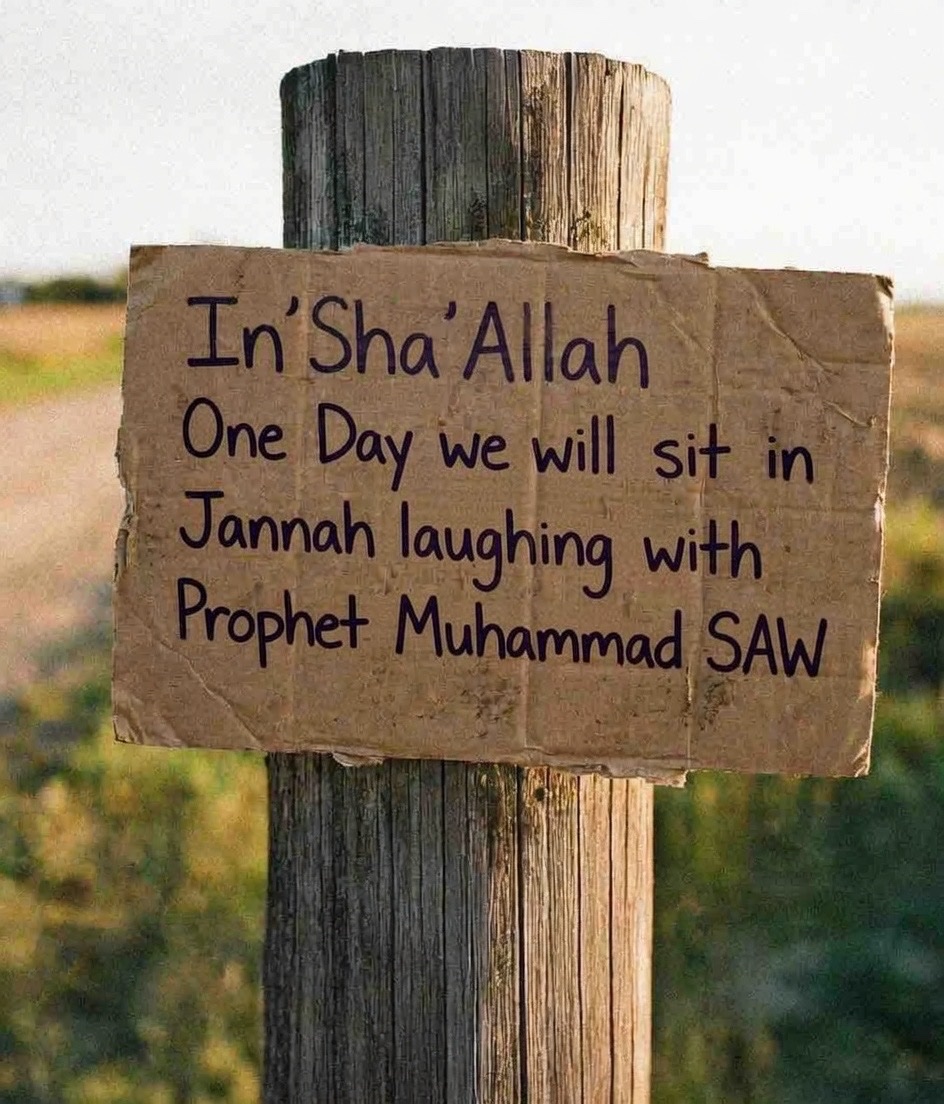 In'Sha'Allah
One Day we will sit in
Jannah laughing with
Prophet Muhammad SAW